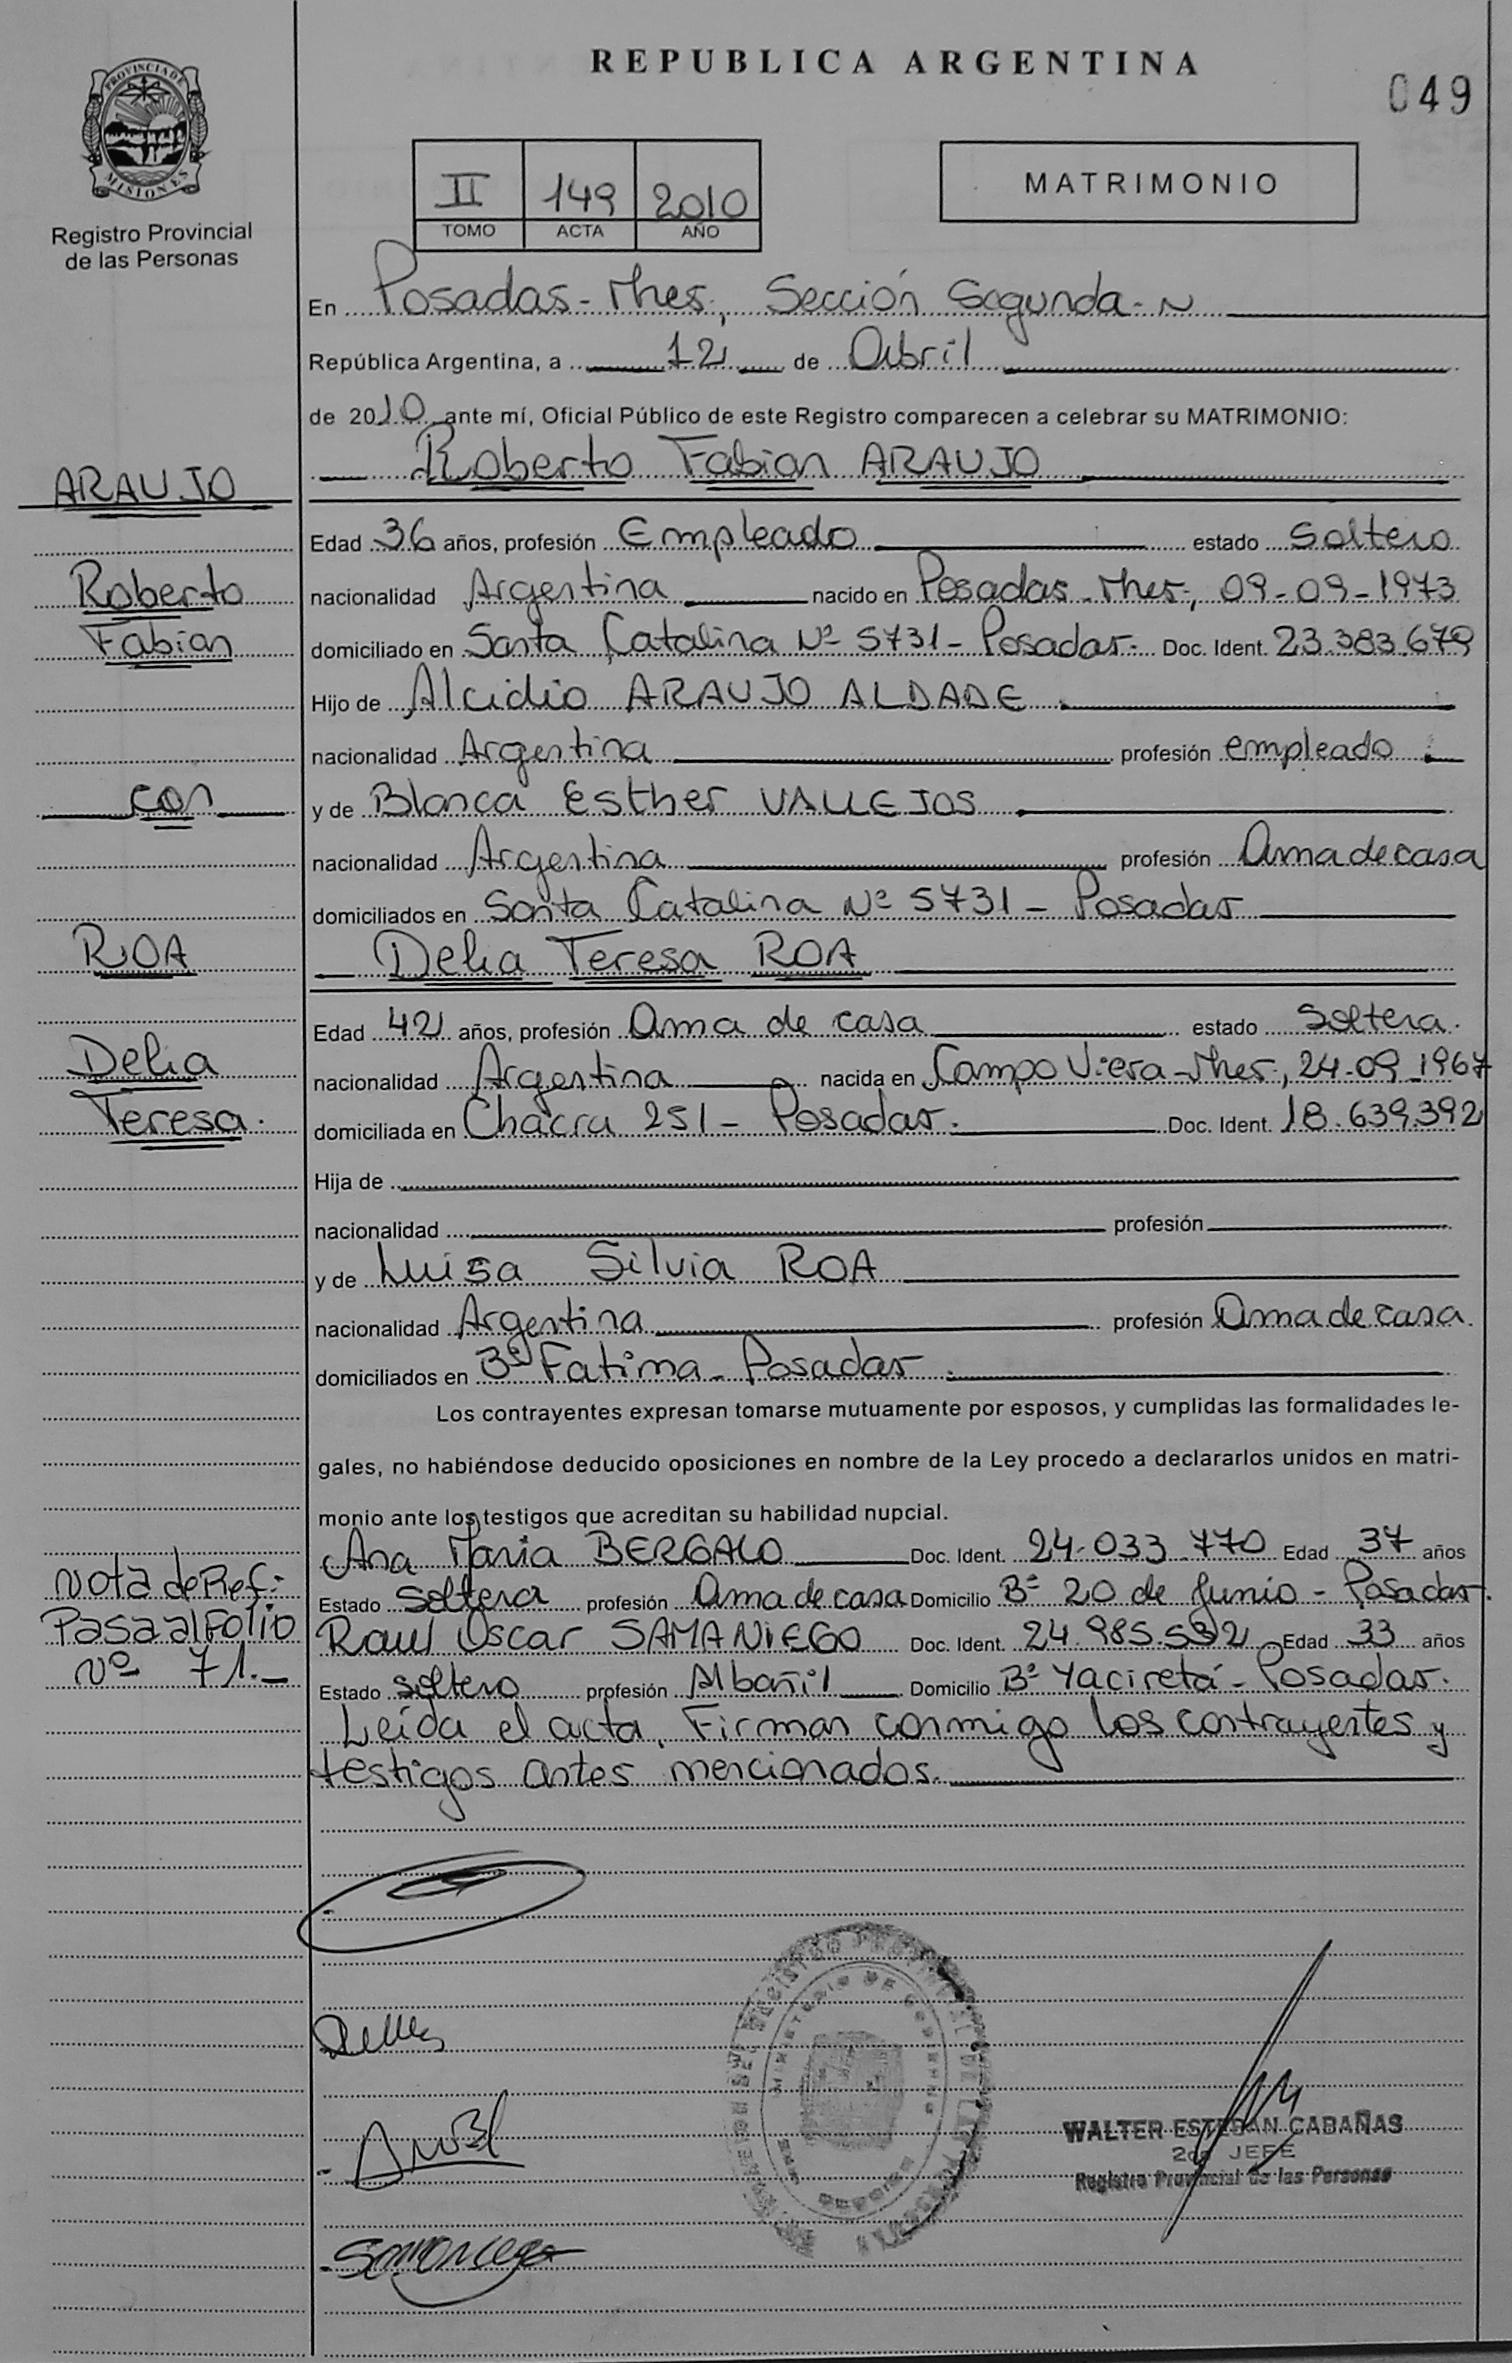 REPUBLICA ARGENTINA
049
PROVINCIA DE
MISIONES
Registro Provincial
de las Personas
II 149 2010
TOMO ACTA AÑO
MATRIMONIO
En Posadas - Mnes, Sección Segunda - N
República Argentina, a 12 de Abril
de 2010 ante mí, Oficial Público de este Registro comparecen a celebrar su MATRIMONIO:
Roberto Fabian ARAUJO
ARAUJO
Edad 36 años, profesión Empleado estado Soltero
Roberto
nacionalidad Argentina nacido en Posadas - Mnes, 09-09-1973
Fabian
domiciliado en Santa Catalina Nº 5731 - Posadas. Doc. Ident. 23.383.679
Hijo de Alcidio ARAUJO ALDADE
nacionalidad Argentina profesión empleado
con
y de Blanca Esther VALLEJOS
nacionalidad Argentina profesión Ama de casa
domiciliados en Santa Catalina Nº 5731 - Posadas
ROA
Delia Teresa ROA
Edad 42 años, profesión Ama de casa estado Soltera.
Delia
nacionalidad Argentina nacida en Campo Viera - Mnes, 24-09-1967
Teresa.
domiciliada en Chacra 251 - Posadas. Doc. Ident. 18.639.392
Hija de
nacionalidad profesión
y de Luisa Silvia ROA
nacionalidad Argentina profesión Ama de casa.
domiciliados en Bº Fatima - Posadas
Los contrayentes expresan tomarse mutuamente por esposos, y cumplidas las formalidades le-
gales, no habiéndose deducido oposiciones en nombre de la Ley procedo a declararlos unidos en matri-
monio ante los testigos que acreditan su habilidad nupcial.
Ana Maria BERGALO Doc. Ident. 24.033.770 Edad 37 años
Nota de Ref:
Estado Soltera profesión Ama de casa Domicilio Bº 20 de Junio - Posadas.
Pasa al Folio
Raul Oscar SAMANIEGO Doc. Ident. 24.985.592 Edad 33 años
Nº 71.-
Estado soltero profesión Albañil Domicilio Bº Yaciretá - Posadas.
Leída el acta, Firman conmigo los contrayentes y
testigos antes mencionados.
MINISTERIO DE GOBIERNO
WALTER ESTEBAN CABAÑAS
2do JEFE
Registro Provincial de las Personas